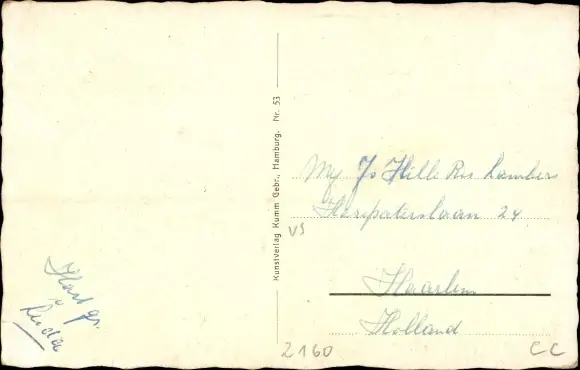 Hart gr.
Luida
Kunstverlag Kumm Gebr., Hamburg. Nr. 53
Mej Jo Hille Ris Lambers
Florapaterslaan 24
VS
Haarlem
Holland
2160
CC